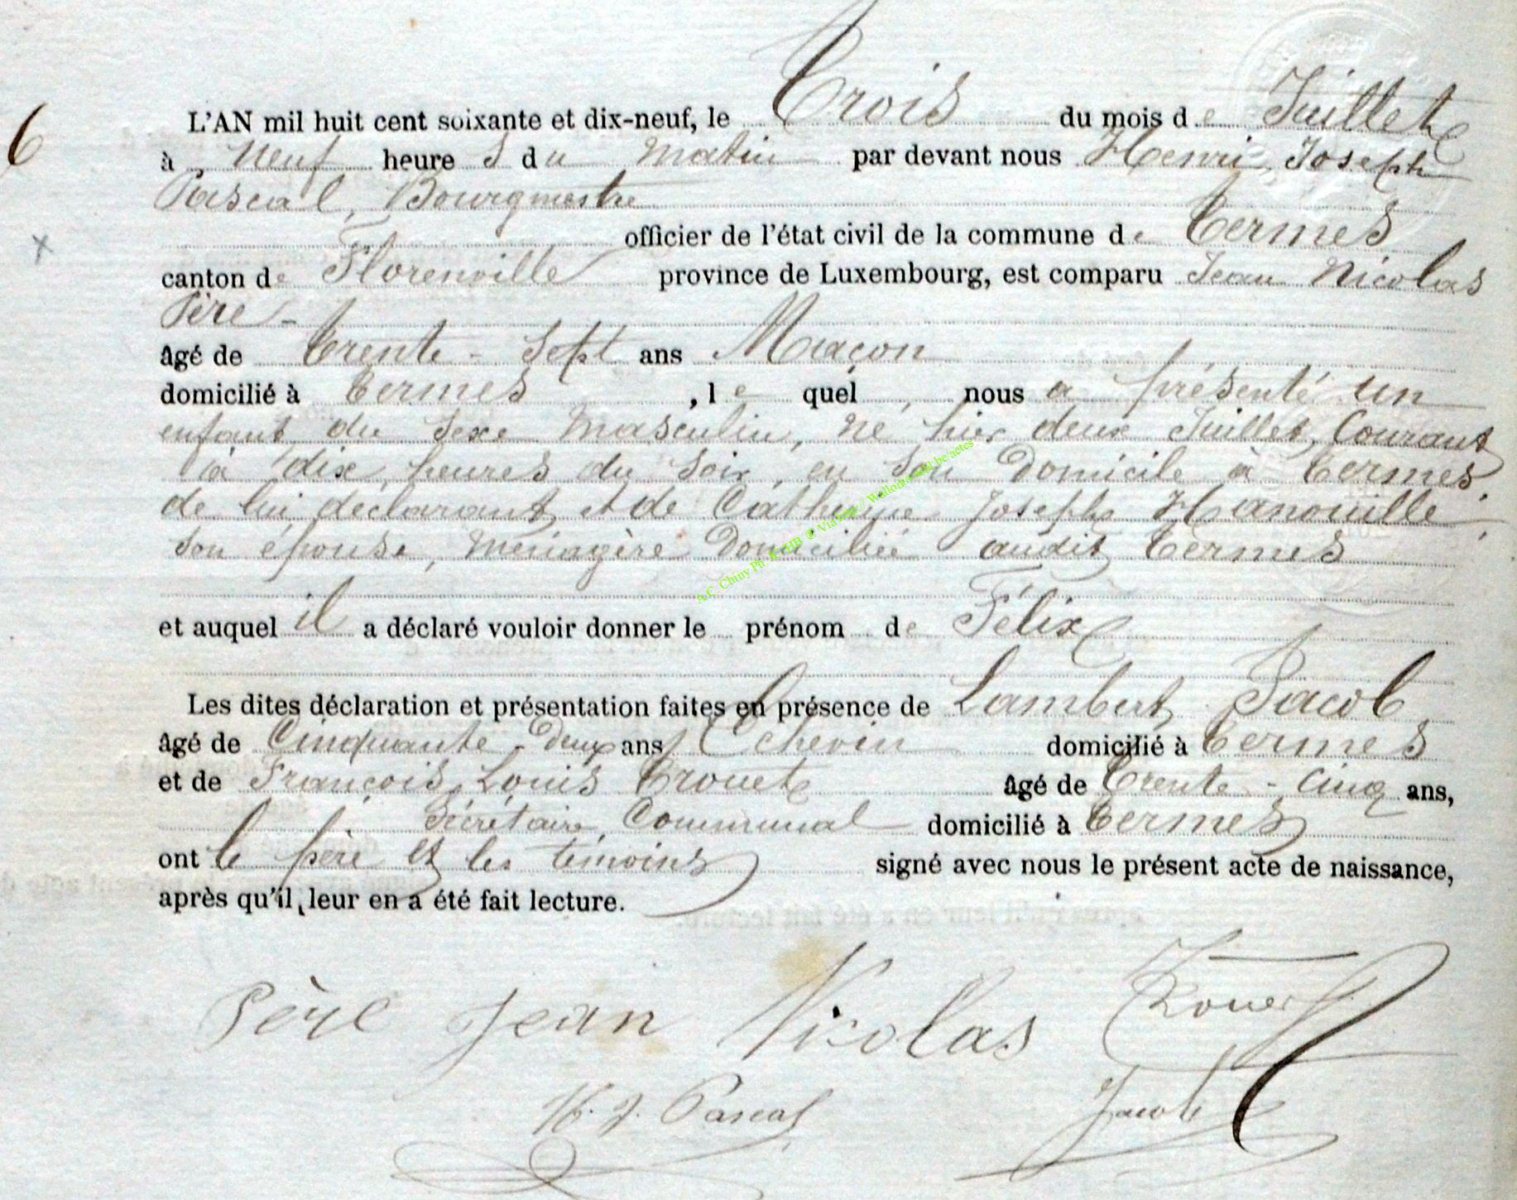 6
L'AN mil huit cent soixante et dix-neuf, le Trois du mois de Juillet
à neuf heures du matin par devant nous Henri Joseph
Pascal, Bourgmestre
officier de l'état civil de la commune de Termes
canton de Florenville province de Luxembourg, est comparu Jean Nicolas
Père -
âgé de trente-sept ans Maçon
domicilié à Termes, lequel, nous a présenté un
enfant du sexe masculin, né hier deux Juillet Courant
à dix heures du soir, en son Domicile à Termes,
de lui déclarant et de Catherine Josephe Hanouille
son épouse, ménagère Domiciliée audit Termes
et auquel il a déclaré vouloir donner le prénom de Félix
Les dites déclaration et présentation faites en présence de Lambert Jacob
âgé de Cinquante-deux ans, Echevin domicilié à Termes
et de François, Louis Trouet âgé de Trente-cinq ans,
Sécrétaire, Communal domicilié à Termes
ont le père et les témoins signé avec nous le présent acte de naissance,
après qu'il leur en a été fait lecture.
Père Jean Nicolas
H. J. Pascal Jacob